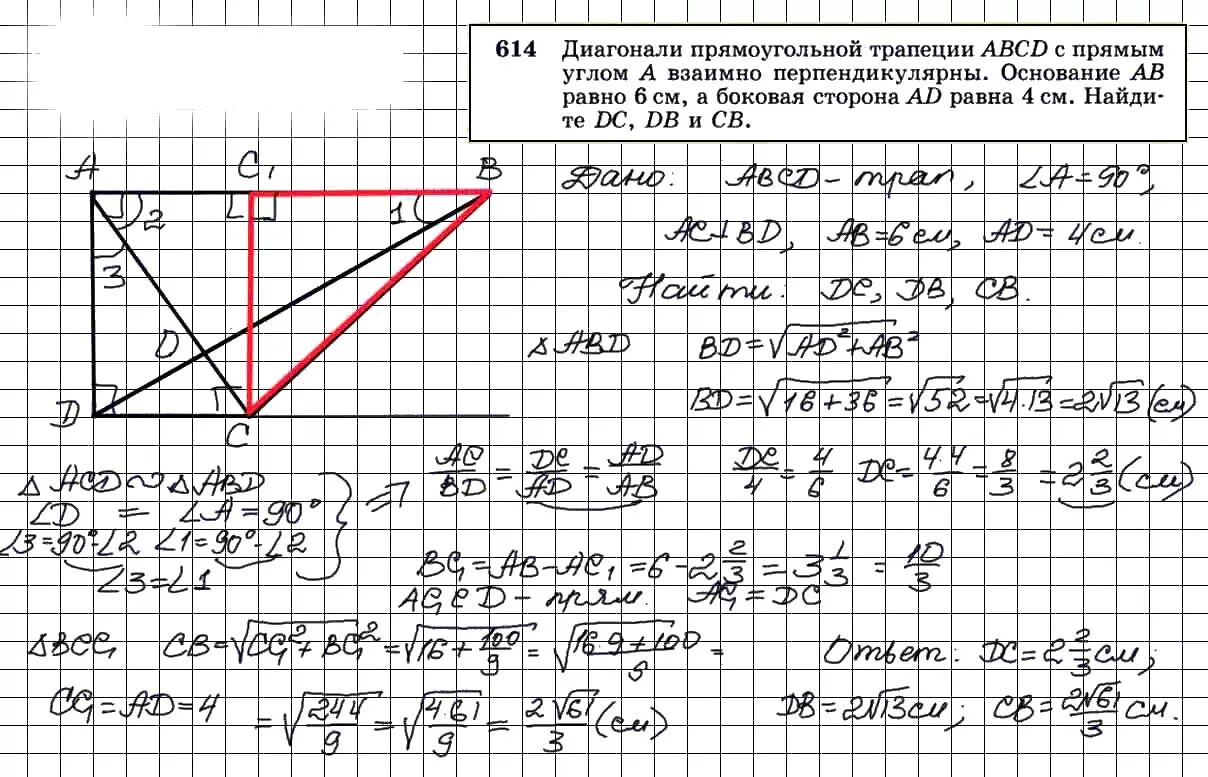 614 Диагонали прямоугольной трапеции ABCD с прямым
углом A взаимно перпендикулярны. Основание AB
равно 6 см, а боковая сторона AD равна 4 см. Найди-
те DC, DB и CB.
A C₁ B
2 1
3
O
D C
Дано: ABCD – трап, ∠A = 90°,
AC⊥BD, AB = 6 см, AD = 4 см.
Найти: DC, DB, CB.
△ABD BD = √(AD² + AB²)
BD = √(16 + 36) = √52 = √(4·13) = 2√13 (см)
△ACD ~ △ABD
∠D = ∠A = 90°
∠3 = 90° - ∠2 ∠1 = 90° - ∠2
∠3 = ∠1
⇒ AC/BD = DC/AD = AD/AB DC/4 = 4/6 DC = 4·4/6 = 8/3 = 2 2/3 (см)
BC₁ = AB – AC₁ = 6 - 2 2/3 = 3 1/3 = 10/3
AC₁CD – прям. AC₁ = DC
△BCC₁ CB = √(CC₁² + BC₁²) = √(16 + 100/9) = √((16·9 + 100)/9) =
CC₁ = AD = 4 = √(244/9) = √(4·61/9) = 2√61/3 (см)
Ответ: DC = 2 2/3 см;
DB = 2√13 см; CB = 2√61/3 см.